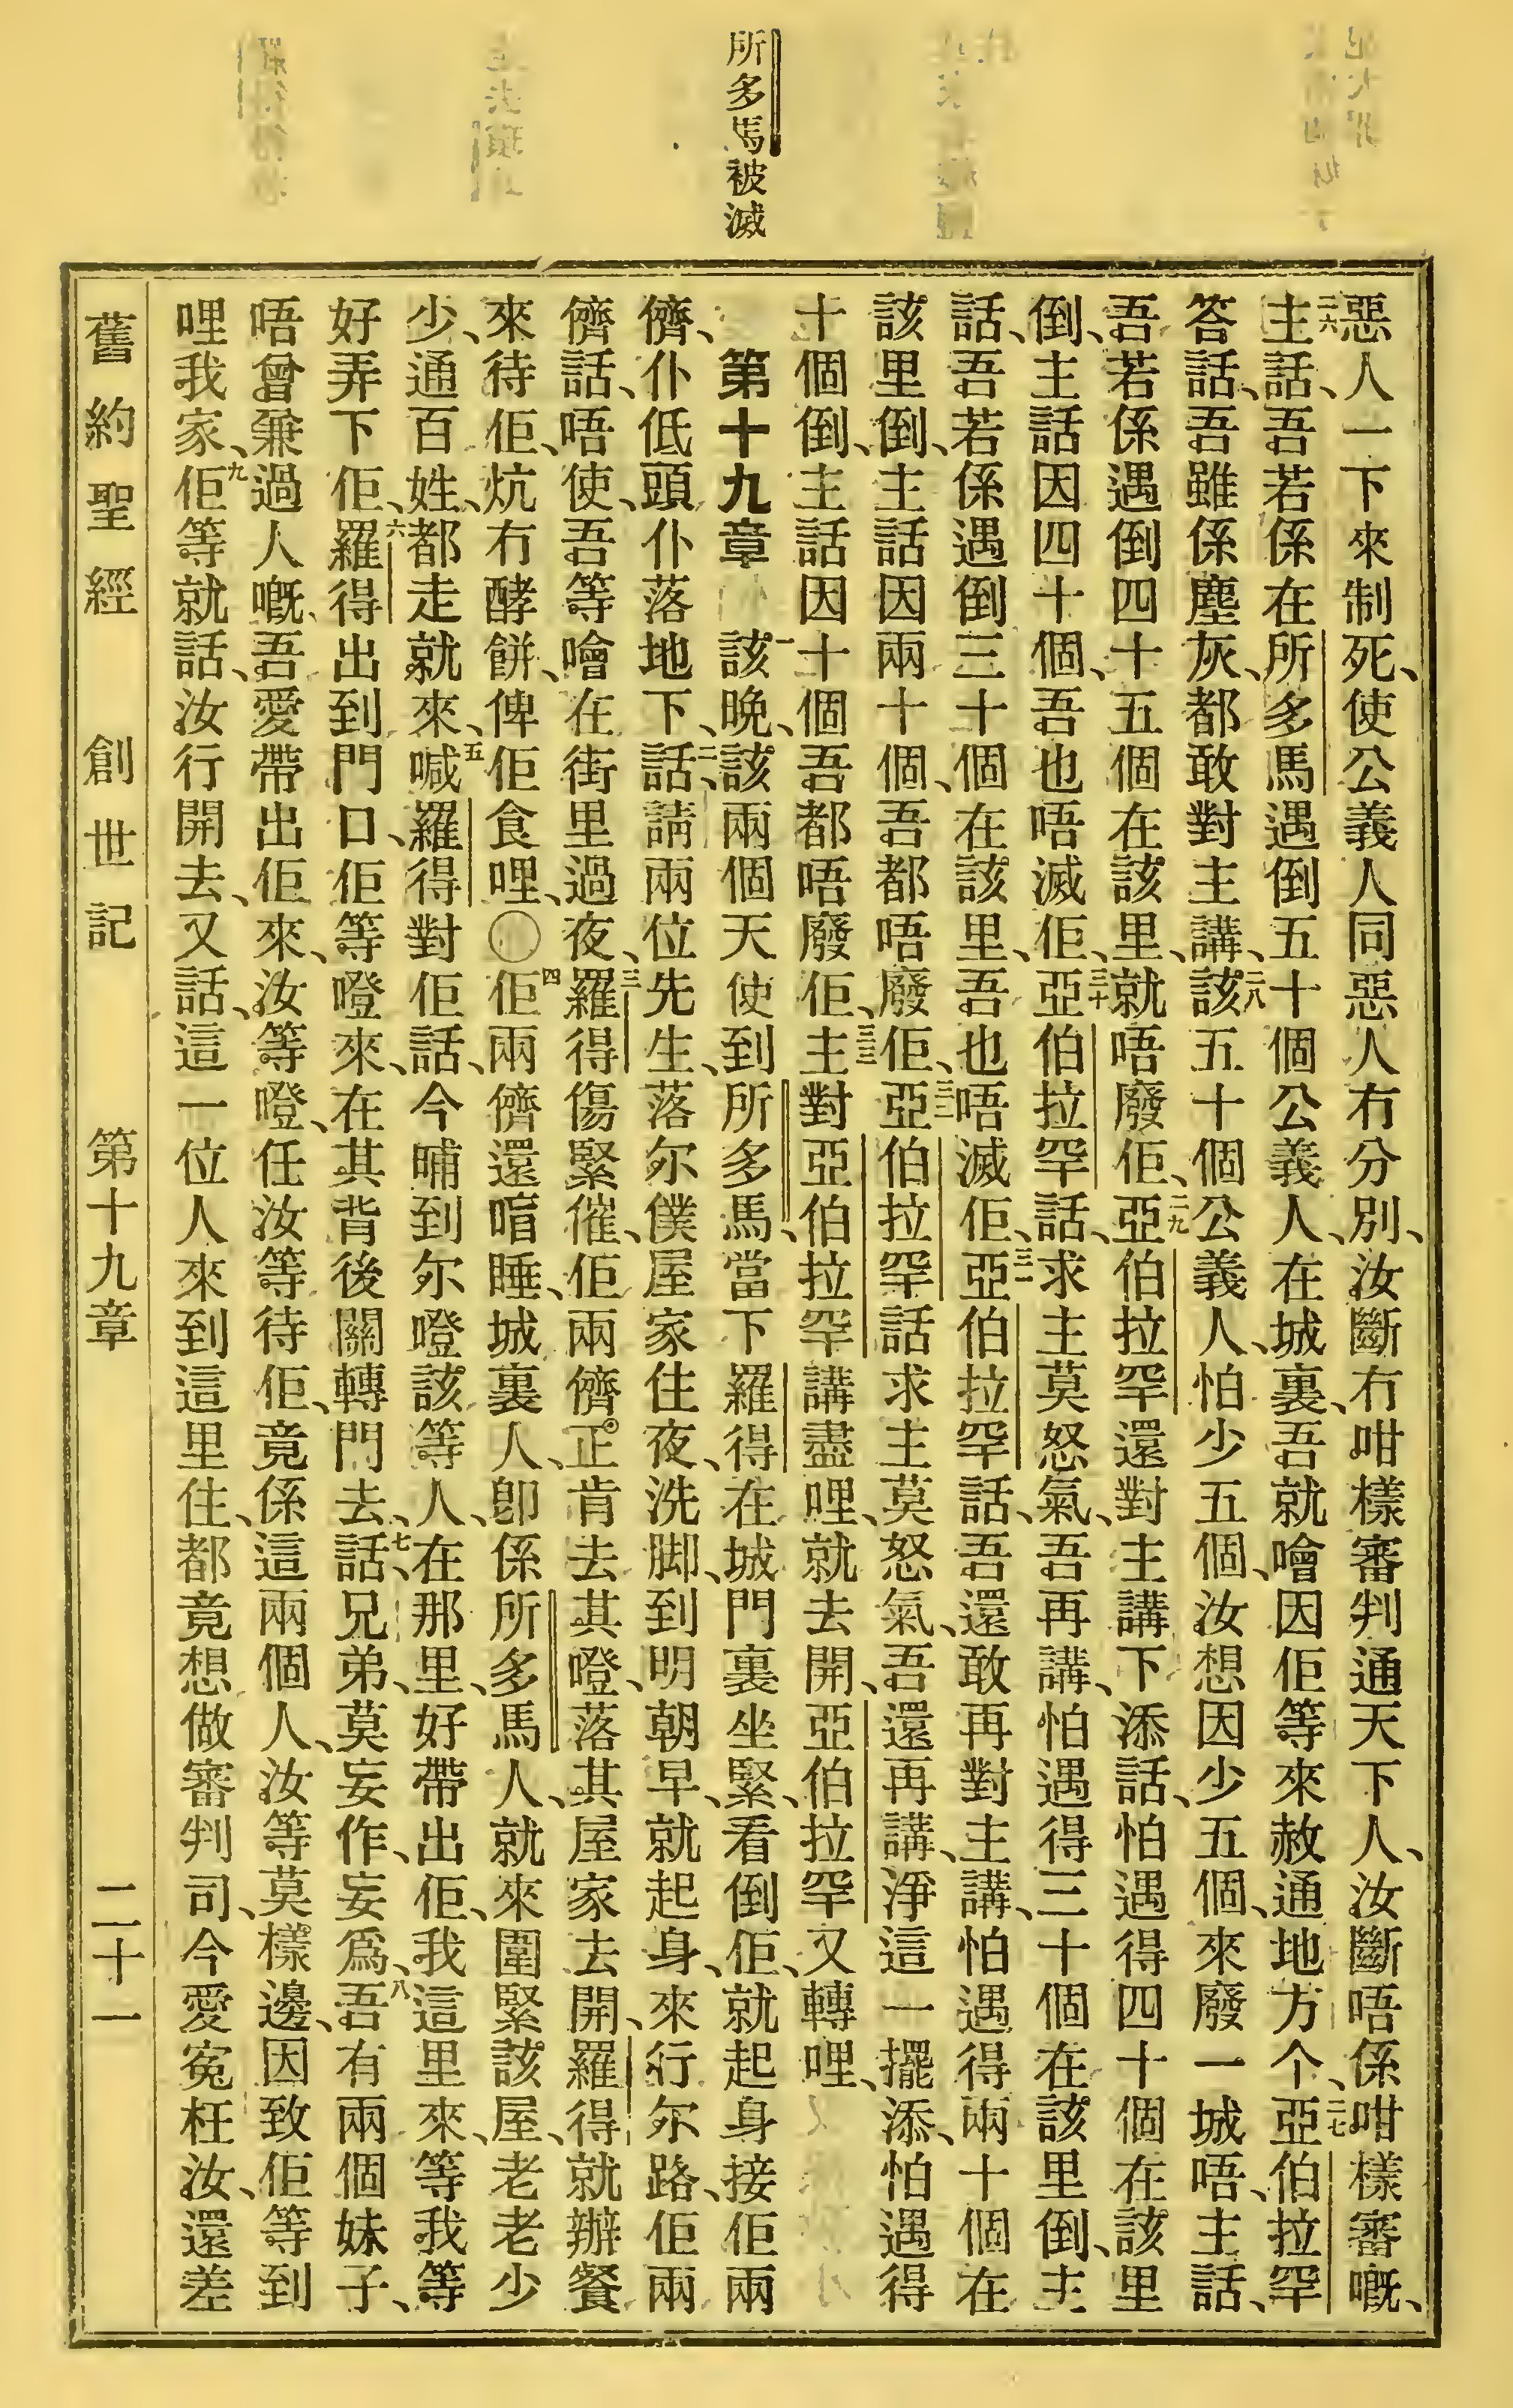 所多馬被滅
惡人一下來制死、使公義人同惡人冇分別、汝斷冇咁樣審判通天下人、汝斷唔係咁樣審嘅、
二六主話、吾若係在所多馬遇倒五十個公義人、在城裏、吾就噲因佢等來赦通地方个、二七亞伯拉罕
答話、吾雖係塵灰、都敢對主講、二八該五十個公義人、怕少五個、汝想因少五個、來廢一城唔、主話、
吾若係遇倒四十五個在該里、就唔廢佢、二九亞伯拉罕還對主講下添話、怕遇得四十個在該里
倒、主話因四十個、吾也唔滅佢、三十亞伯拉罕話、求主莫怒氣、吾再講、怕遇得三十個在該里倒、主
話、吾若係遇倒三十個在該里、吾也唔滅佢、三一亞伯拉罕話、吾還敢再對主講、怕遇得兩十個在
該里倒、主話因兩十個、吾都唔廢佢、三二亞伯拉罕話求主莫怒氣、吾還再講、淨這一擺添、怕遇得
十個倒、主話因十個吾都唔廢佢、三三主對亞伯拉罕講盡哩、就去開、亞伯拉罕又轉哩、
第十九章 一該晚、該兩個天使到所多馬、當下羅得在城門裏坐緊、看倒佢、就起身接佢兩
儕、仆低頭仆落地下、二話、請兩位先生、落尔僕屋家住夜、洗脚、到明朝早、就起身、來行尔路、佢兩
儕話、唔使、吾等噲在街里過夜、三羅得傷緊催、佢兩儕正肯去其噔、落其屋家去開、羅得就辦餐
來待佢、炕冇酵餅、俾佢食哩、○四佢兩儕還喑睡、城裏人、卽係所多馬人、就來圍緊該屋、老老少
少、通百姓、都走就來、五喊羅得對佢話、今晡到尔噔該等人、在那里、好帶出佢、我這里來、等我等
好弄下佢、六羅得出到門口、佢等噔來、在其背後關轉門去、七話、兄弟、莫妄作、妄爲、八吾有兩個妹子、
唔曾兼過人嘅、吾愛帶出佢來、汝等噔、任汝等待佢、竟係這兩個人、汝等莫樣邊、因致佢等到
哩我家、九佢等就話、汝行開去、又話、這一位人來到這里住、都竟想做審判司、今愛寃枉汝、還差
舊約聖經 創世記 第十九章 二十一